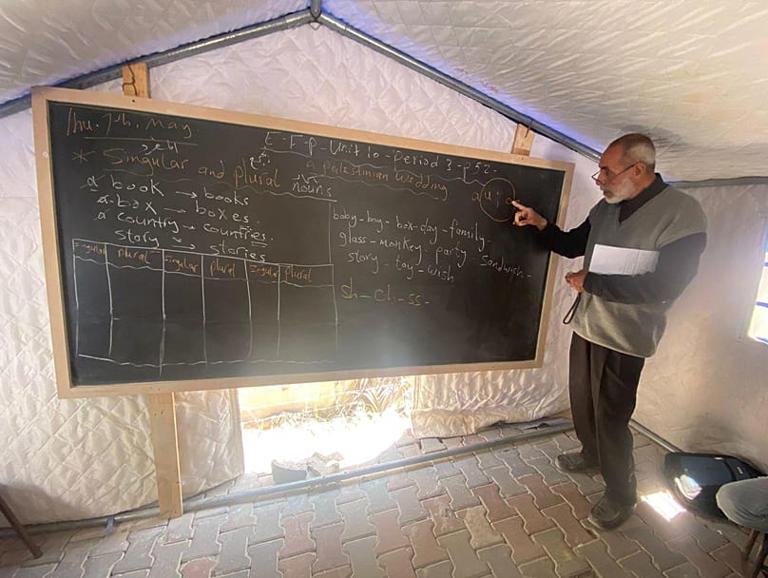 Thu. 7th. May.
E-F-p-Unit 10-Period 3-p52-
* Singular and plural nouns
a Palestinian Wedding
a book → books
a box → boxes.
a country → countries.
story → stories
baby-boy-box-day-family-
glass-monkey-party-sandwich-
story-toy-wish
Singular plural Singular plural Singular plural
sh-ch-ss-